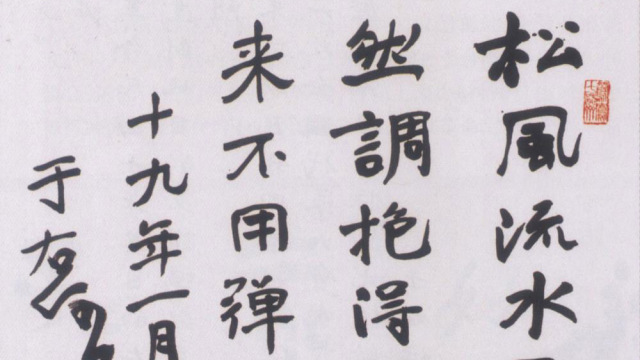 松風流水
然調抱得
来不用弹
十九年一月
于右